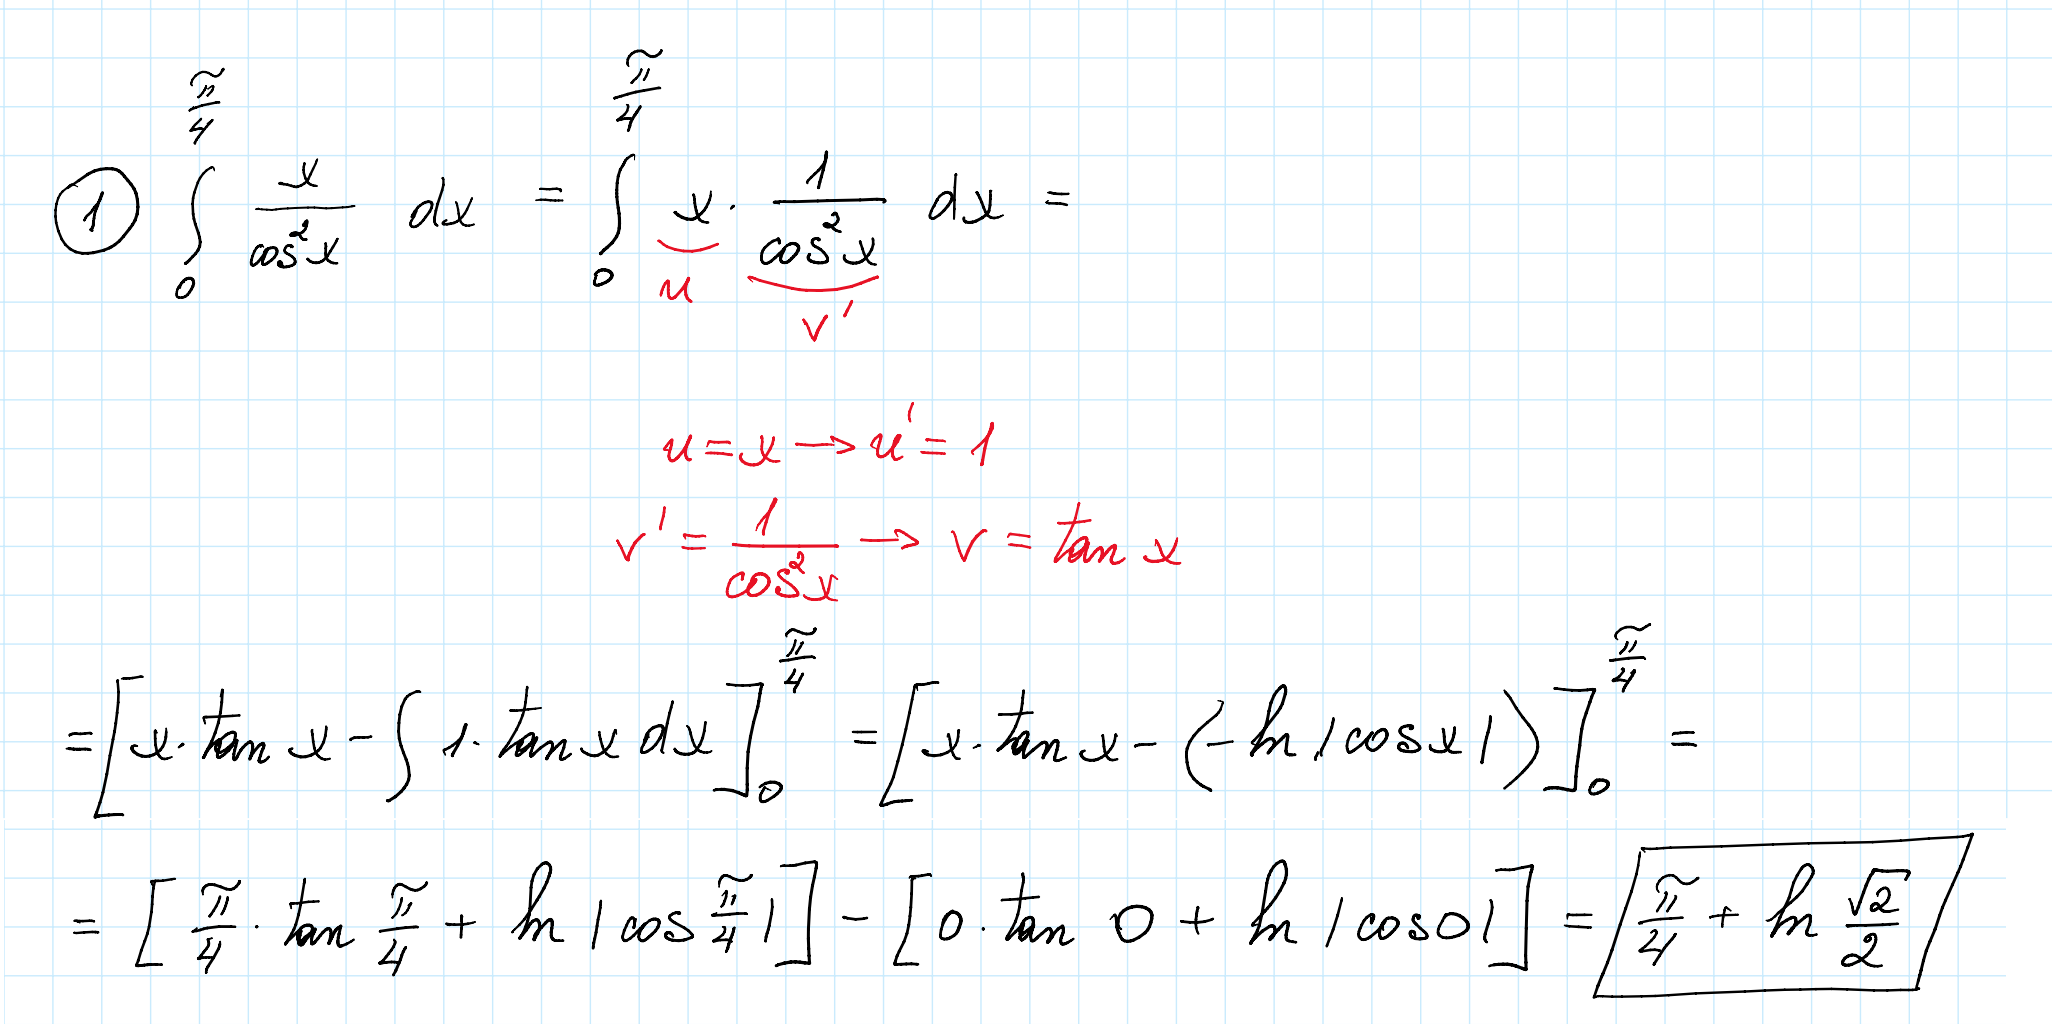 ① ∫₀^(π/4) x/cos²x dx = ∫₀^(π/4) x · 1/cos²x dx =
u v'
u = x → u' = 1
v' = 1/cos²x → v = tan x
= [x · tan x − ∫ 1 · tan x dx]₀^(π/4) = [x · tan x − (−ln |cos x|)]₀^(π/4) =
= [π/4 · tan π/4 + ln |cos π/4|] − [0 · tan 0 + ln |cos 0|] = π/4 + ln √2/2